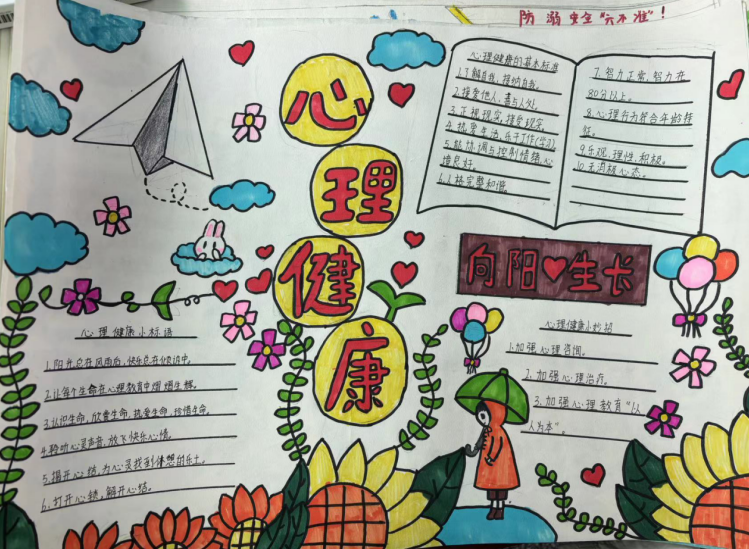 防溺安全“六不准”！
心理健康
心理健康的基本标准
1.了解自我，接纳自我。
2.接受他人，喜与人处。
3.正视现实，接受现实。
4.热爱生活，乐于工作(学习)
5.能协调与控制情绪，心
境良好。
6.人格完整和谐。
7.智力正常，智力在
80分以上。
8.心理行为符合年龄特
征。
9.乐观、理性、积极。
10.无消极心态。
向阳生长
心理健康小标语
1.阳光总在风雨后，快乐总在倾诉中。
2.让每个生命在心理教育中熠熠生辉。
3.认识生命，欣赏生命，热爱生命，珍惜生命。
4.聆听心灵声音，放飞快乐心情。
5.揭开心结，为心灵找到休憩的乐土。
6.打开心锁，解开心结。
心理健康小妙招
1.加强心理咨询。
2.加强心理治疗。
3.加强心理教育“以
人为本”。